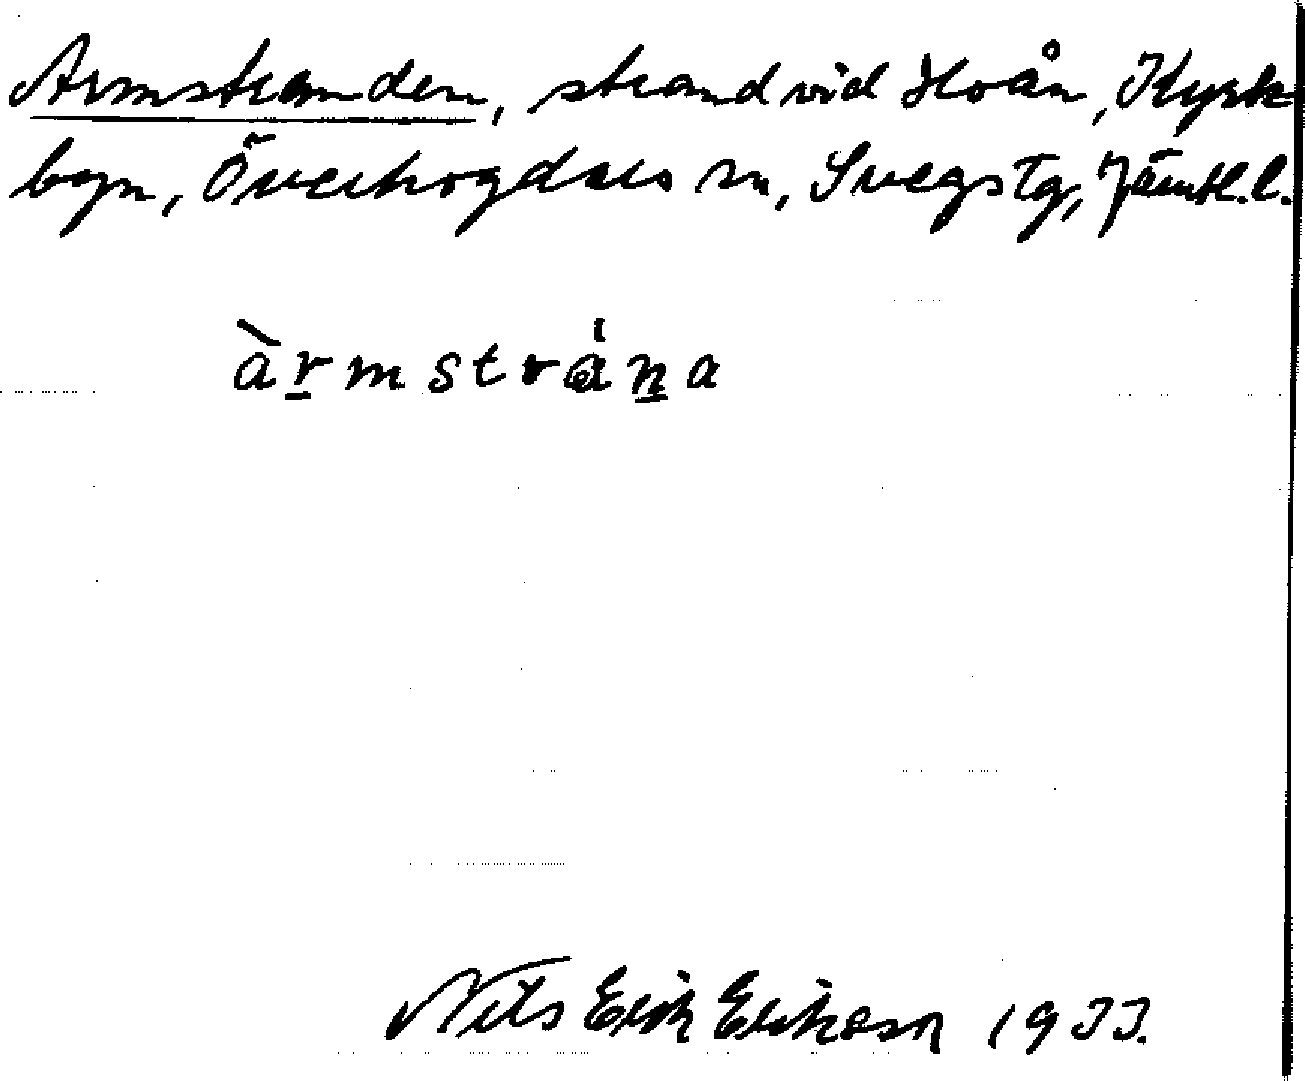 Armstranden, strand vid Hoån, Kyrk
byn, Överhogdals sn, Svegs tg, Jämtl. l.
àrmstrána
Nils Erik Erikson 1933.